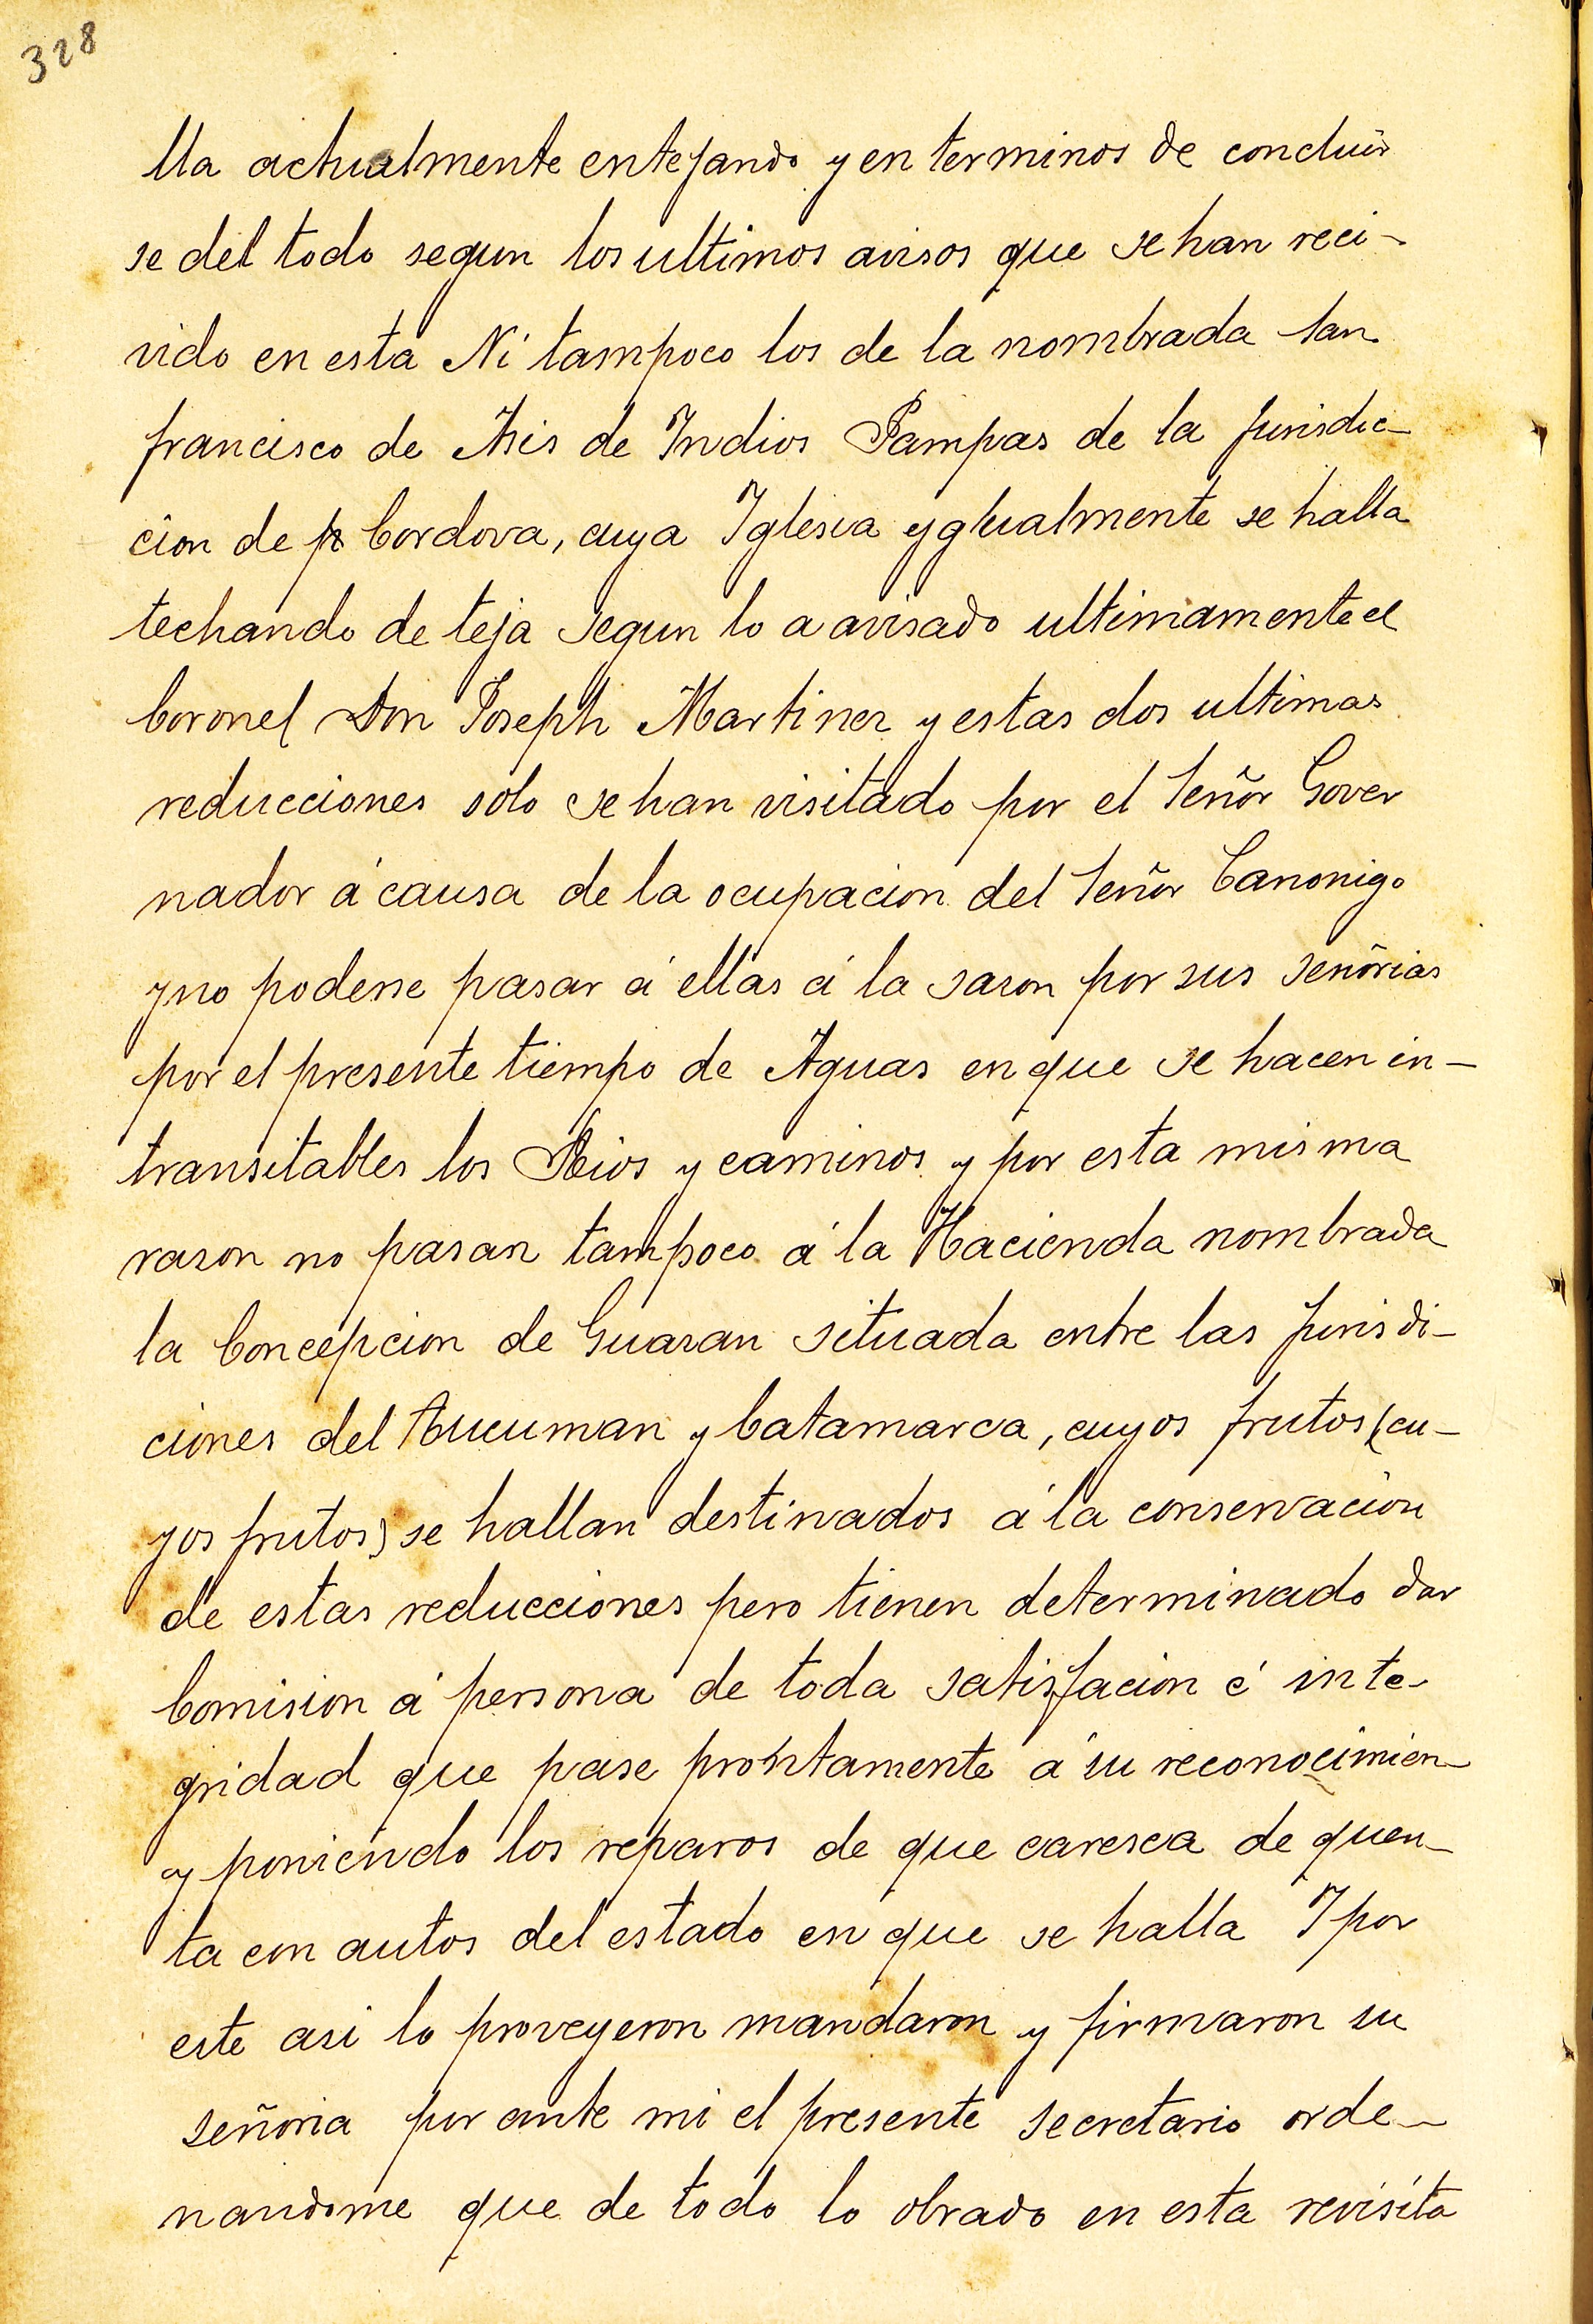 328
lla actualmente entejando y en terminos de concluir
se del todo segun los ultimos avisos que se han reci-
vido en esta Ni tampoco los de la nombrada San
francisco de Asis de Indios Pampas de la Jurisdic-
cion de Cordova, cuya Iglesia ygualmente se halla
techando de teja segun lo a avisado ultimamente el
Coronel Don Joseph Martinez y estas dos ultimas
reducciones solo se han visitado por el Señor Gover
nador á causa de la ocupacion del Señor Canonigo
y no poderse pasar á ellas á la sazon por sus señorias
por el presente tiempo de Aguas en que se hacen in-
transitables los Rios y caminos y por esta misma
razon no pasan tampoco á la Hacienda nombrada
la Concepcion de Guazan situada entre las Jurisdi-
ciones del Tucuman y Catamarca, cuyos frutos (cu-
yos frutos) se hallan destinados á la conservacion
de estas reducciones pero tienen determinado dar
Comision á persona de toda satisfacion é inte-
gridad que pase prontamente á su reconocimien-
y poniendo los reparos de que caresca de quen-
ta con autos del estado en que se halla Y por
este asi lo proveyeron mandaron y firmaron su
señoria por ante mi el presente secretario orde-
nandome que de todo lo obrado en esta revisita